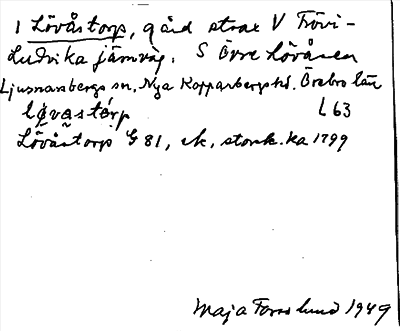 1 Lövåstorp, gård strax V Frövi-
Ludvika järnväg. S Övre Lövåsen
Ljusnarsbergs sn, Nya Kopparbergs hd. Örebro län
L 63
Lövåstorp G 81, ek, stork.ka 1799
Maja Forslund 1949